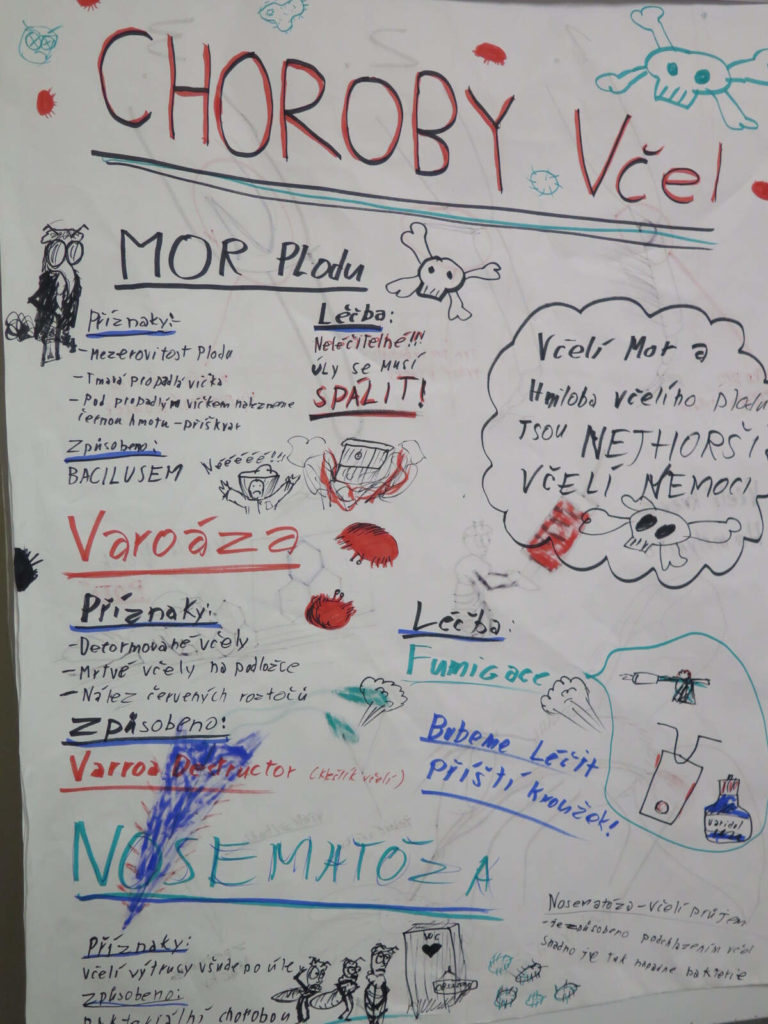 CHOROBY Včel
MOR Plodu
Příznaky:
- Mezerovitost plodu
- Tmavá propadlá víčka
- Pod propadlým víčkem nalezneme
černou hmotu - příškvar
Způsobeno:
BACILUSEM
Léčba:
Neléčitelné!!!
Úly se musí
SPÁLIT!
Nééééé!!!
Včelí Mor a
Hniloba včelího plodu
JSOU NEJHORŠÍ
VČELÍ NEMOCI
Varoáza
Příznaky:
- Deformované včely
- Mrtvé včely na podložce
- Nález červených roztočů
Způsobeno:
Varroa Destructor (Kleštík včelí)
Léčba:
Fumigace
Budeme Léčit
Příští kroužek!
Varidol
NOSEMATÓZA
Příznaky:
včelí výtrusy všude po úle
Způsobeno:
bakteriální chorobou
WC
Nosematóza - včelí průjem
- je způsobeno podchlazením včel
snadno je tak napadne bakterie